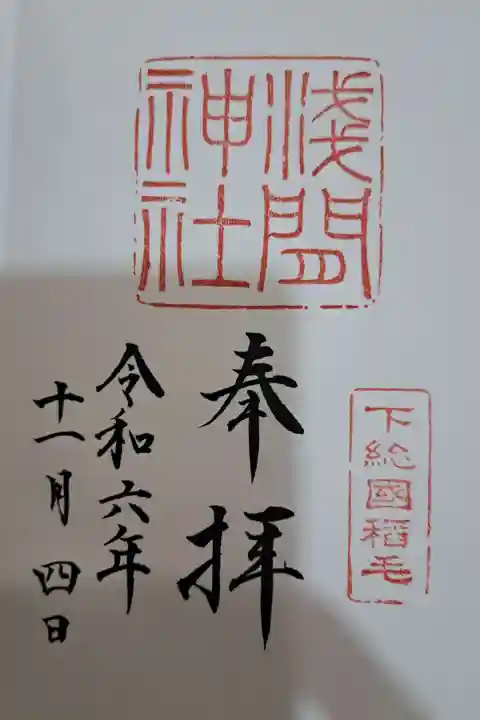 淺間
神社
下総國稲毛
奉拝
令和六年
十一月四日